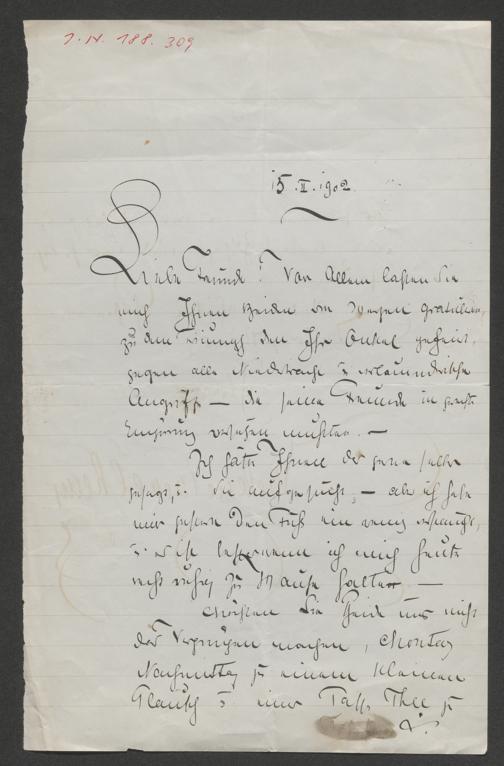 I. N. 188.309
15.II.1902
Liebe Freunde! Vor Allem lassen Sie
mich Ihnen Beiden von Herzen gratuliren,
zu dem Triumph den Ihr Onkel gefeiert,
gegen alle Niedertracht u. verläumderische
Angriffe — die seine Freunde in gerechte
Empörung versetzen mußten. —
Ich hätte Ihnen das gerne selber
gesagt, u. Sie aufgesucht, — aber ich habe
mir gestern den Fuß ein wenig verstaucht,
u. es ist besser wenn ich mich heute
recht ruhig zu Hause halte —
Möchten Sie Beide mir nicht
das Vergnügen machen, Montag
Nachmittag zu einem kleinen
Plausch u. einer Tasse Thee zu